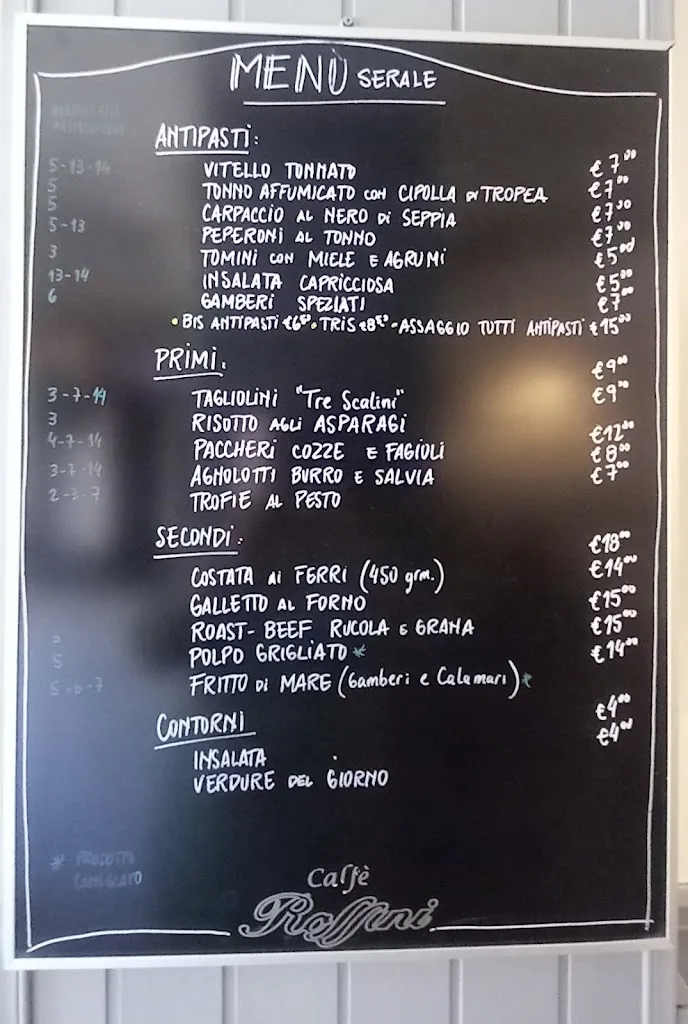 MENÙ SERALE
ANTIPASTI:
5-13-14 VITELLO TONNATO €7,00
5 TONNO AFFUMICATO con CIPOLLA DI TROPEA €7,00
5 CARPACCIO AL NERO DI SEPPIA
5-13 PEPERONI AL TONNO
3 TOMINI CON MIELE E AGRUMI
13-14 INSALATA CAPRICCIOSA €5,00
6 GAMBERI SPEZIATI €7
• BIS ANTIPASTI • TRIS - ASSAGGIO TUTTI ANTIPASTI €15,00
PRIMI:
€9,00
3-7-14 TAGLIOLINI "Tre Scalini" €9,00
3 RISOTTO AGLI ASPARAGI
4-7-14 PACCHERI COZZE E FAGIOLI €12,00
3-7-14 AGNOLOTTI BURRO E SALVIA €8,00
2-3-7 TROFIE AL PESTO €7,00
SECONDI:
€18,00
COSTATA AI FERRI (450 grm.) €14,00
GALLETTO AL FORNO €15,00
ROAST-BEEF RUCOLA E GRANA €15,00
POLPO GRIGLIATO * €14,00
5 FRITTO DI MARE (Gamberi e Calamari) *
CONTORNI
€4,00
€4,00
INSALATA
VERDURE DEL GIORNO
* PRODOTTO
CONGELATO
Caffè
Rossini